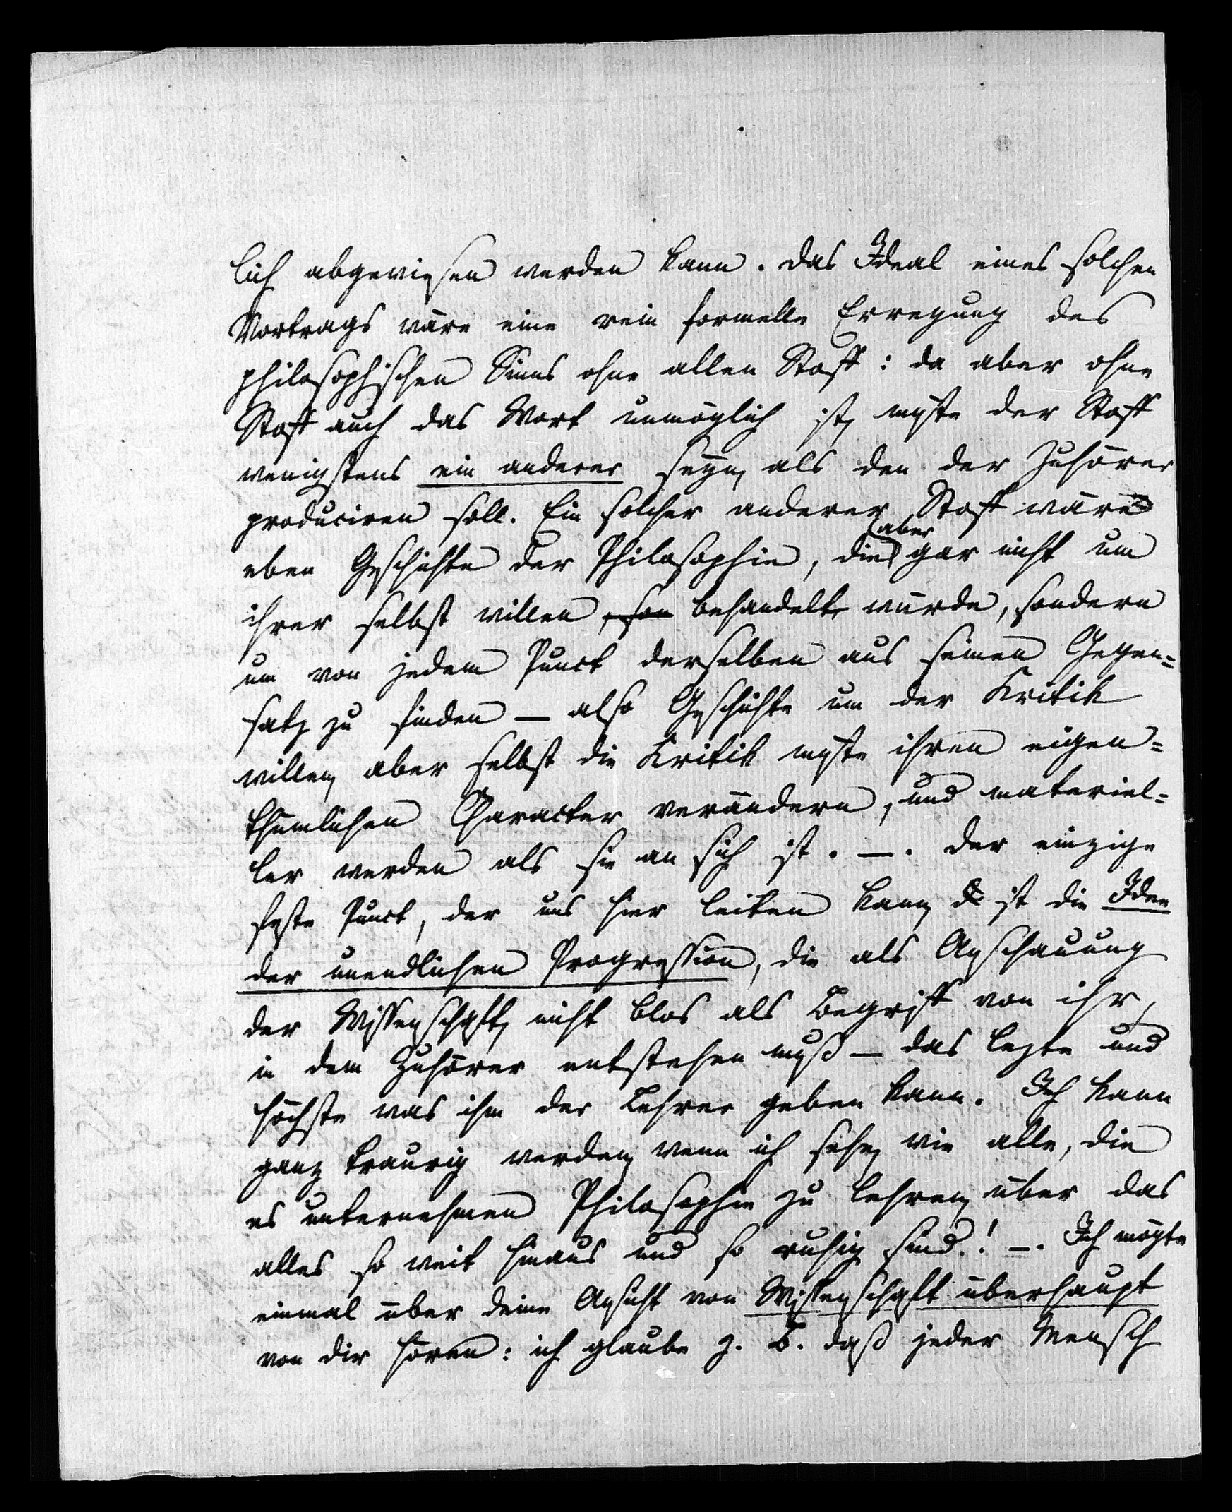 lich abgewiesen werden kann. Das Ideal eines solchen
Vortrags wäre eine rein formelle Erregung des
philosophischen Sinns ohne allen Stoff: da aber ohne
Stoff auch das Wort unmöglich ist, müste der Stoff
wenigstens ein anderer seyn, als den der Zuhörer
produciren soll. Ein solcher anderer Stoff wäre
eben Geschichte der Philosophie, die aber gar nicht um
ihrer selbst willen, son behandelt würde, sondern
um von jedem Punct derselben aus seinen Gegen=
satz zu finden — also Geschichte um der Kritik
willen, aber selbst die Kritik müste ihren eigen=
thümlichen Character verändern, und materiel=
ler werden als sie an sich ist. —. Der einzige
feste Punct, der uns hier leiten kann, ist die Idee
der unendlichen Progression, die als Anschauung
der Wissenschaft, nicht blos als Begriff von ihr,
in dem Zuhörer entstehen muß — das lezte und
höchste was ihm der Lehrer geben kann. Ich kann
ganz traurig werden, wenn ich sehe, wie alle, die
es unternehmen Philosophie zu lehren, über das
alles so weit hinaus und so ruhig sind.! —. Ich mögte
einmal über deine Ansicht von Wissenschaft überhaupt
von dir hören: ich glaube z. B. daß jeder Mensch